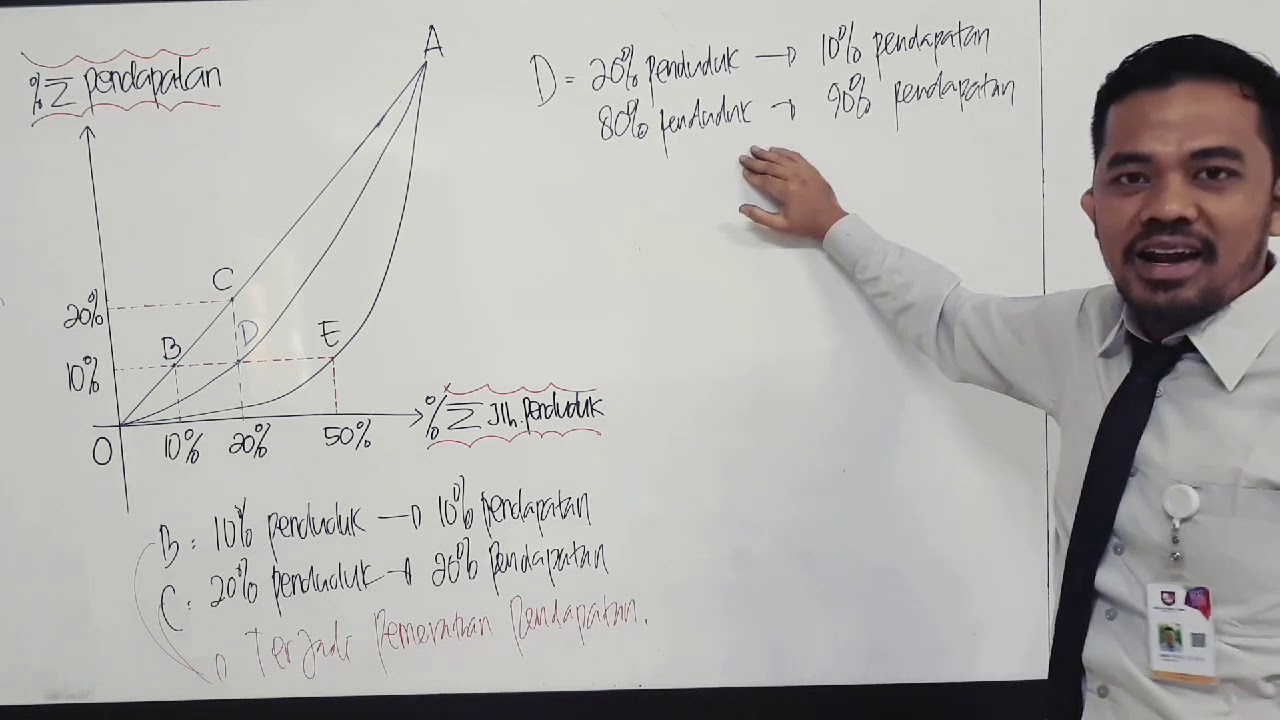 % Σ pendapatan
A
D = 20% penduduk → 10% pendapatan
80% penduduk → 90% pendapatan
C
20%
B
D
E
10%
% Σ Jlh. penduduk
O
10%
20%
50%
B : 10% penduduk → 10% pendapatan
C : 20% penduduk → 20% pendapatan
Terjadi Pemerataan Pendapatan.